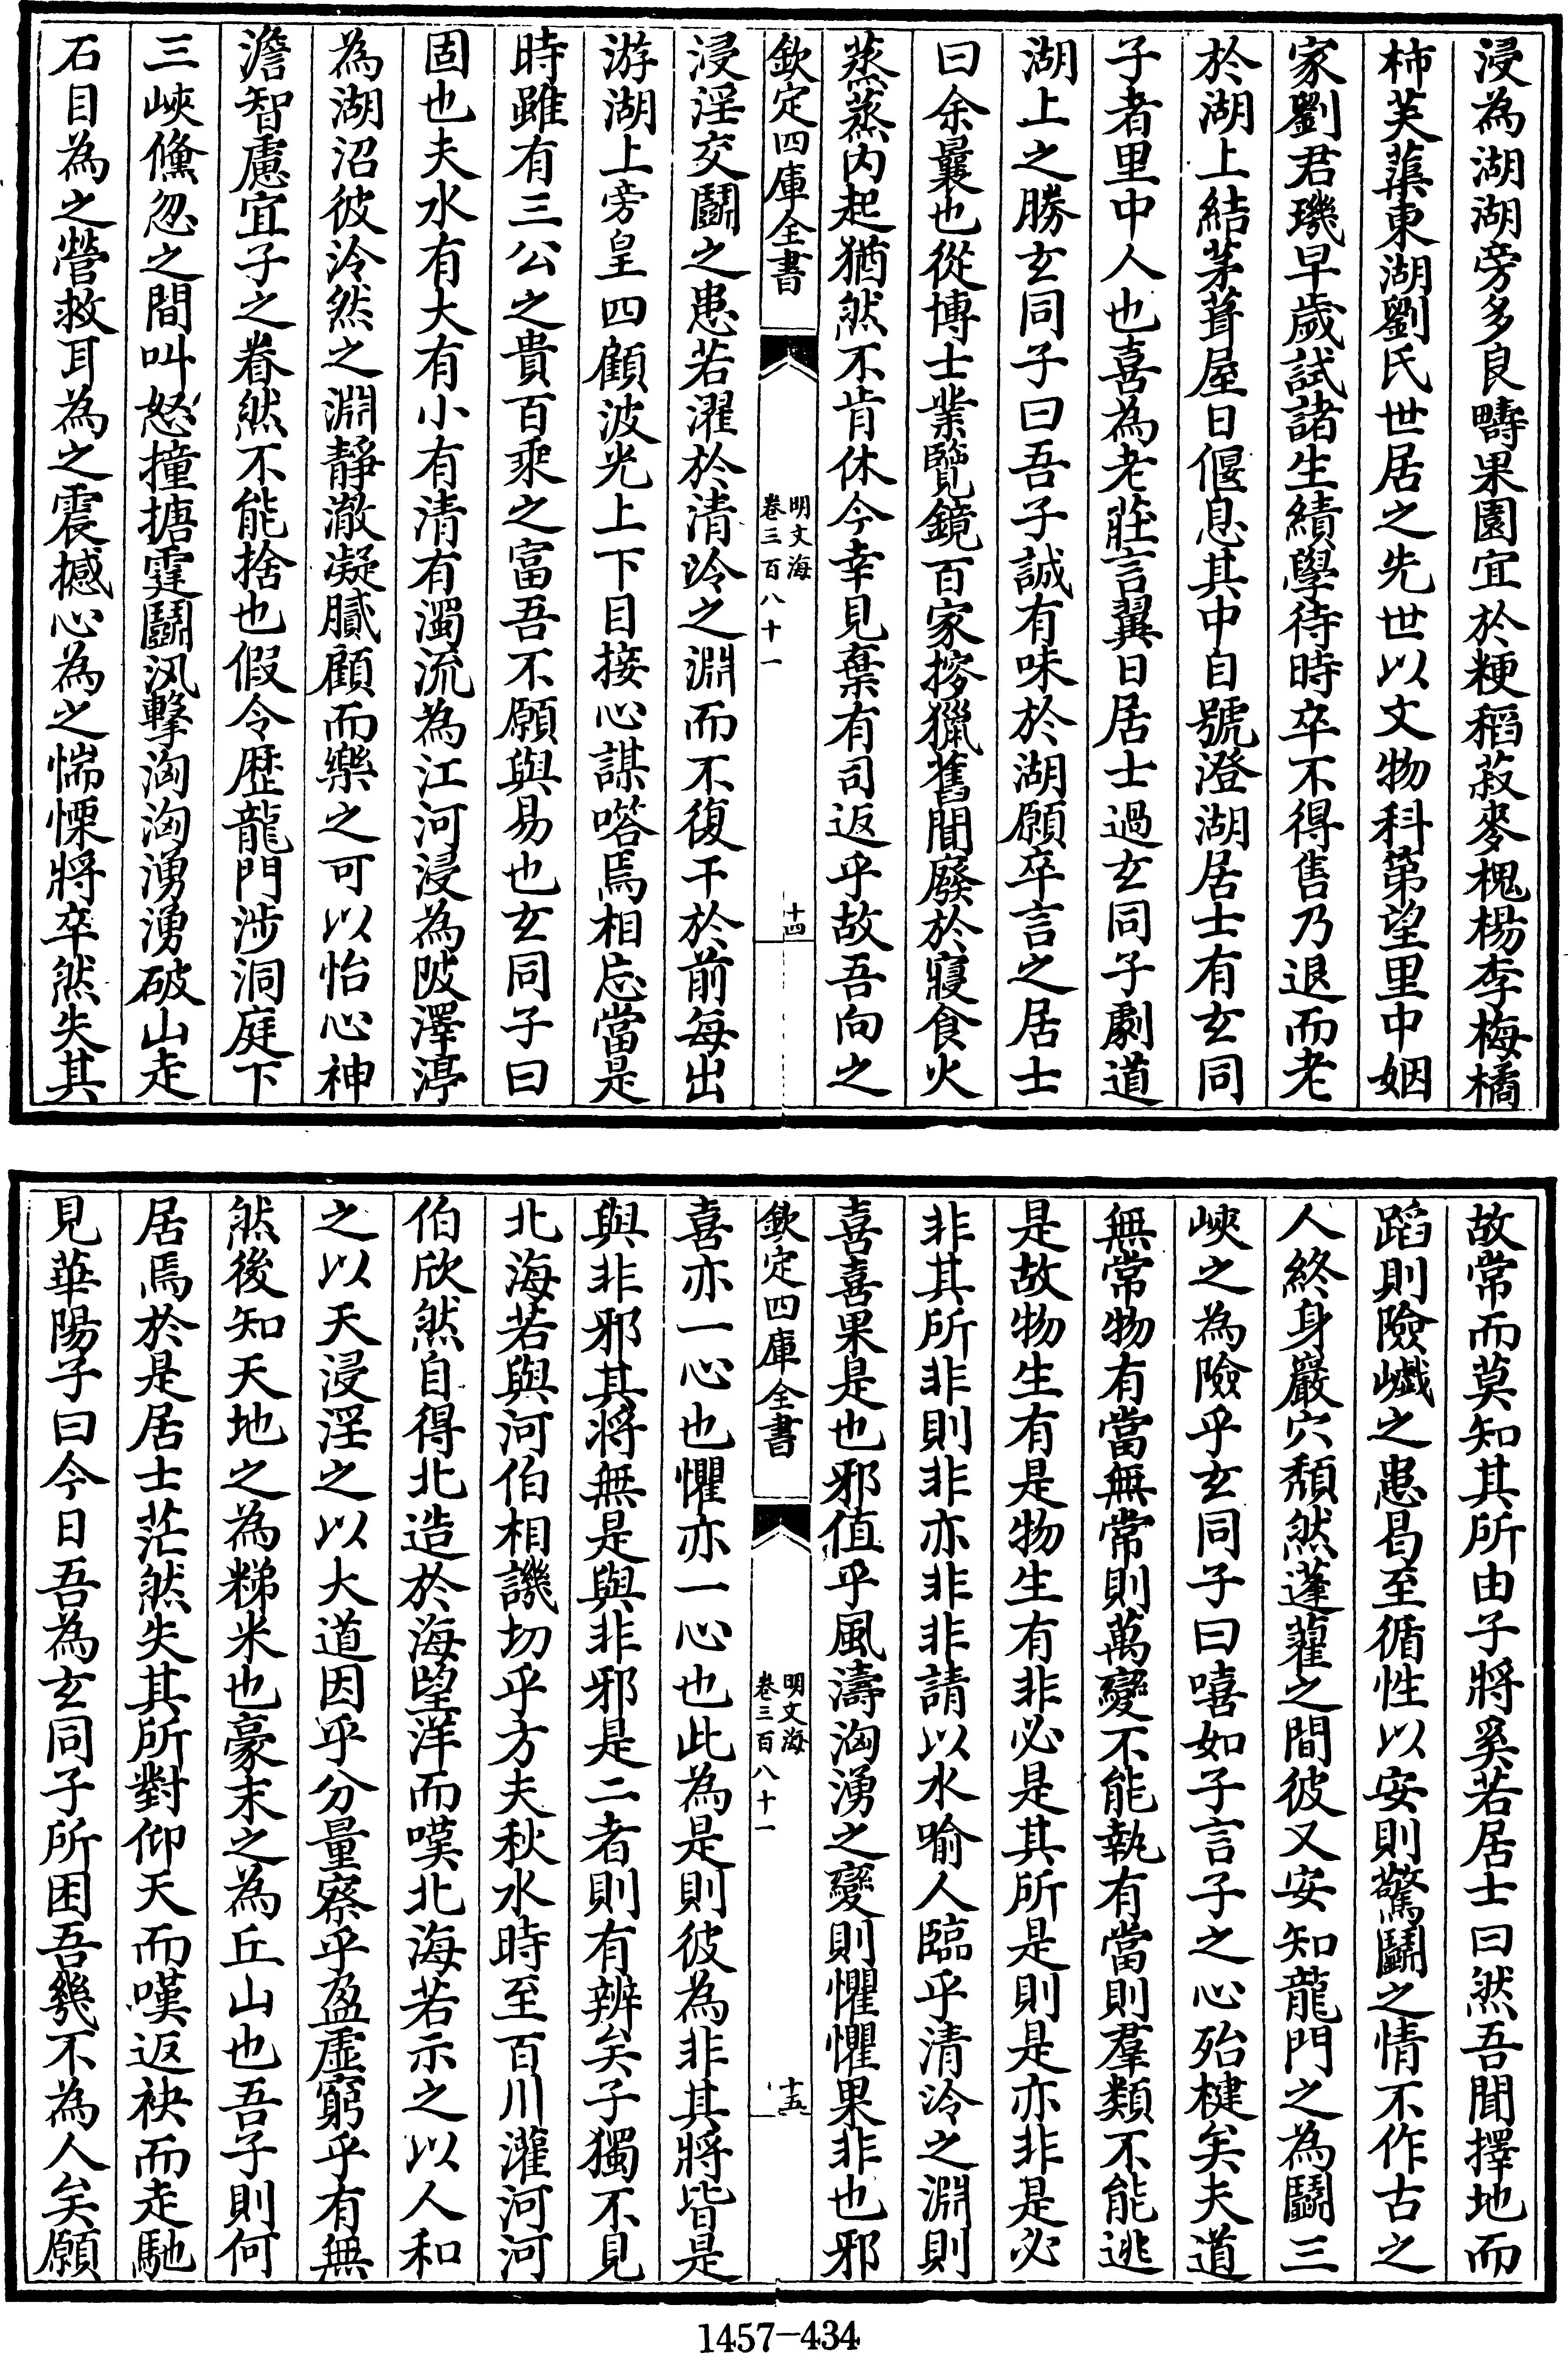 浸為湖湖旁多良疇果園宜於粳稻菽麥槐楊李梅橘
柿芙蕖東湖劉氏世居之先世以文物科第望里中姻
家劉君璣早歲試諸生績學待時卒不得售乃退而老
於湖上結茅葺屋日偃息其中自號澄湖居士有玄同
子者里中人也喜為老莊言翼日居士過玄同子劇道
湖上之勝玄同子曰吾子誠有味於湖願卒言之居士
曰余曩也從博士業覽鏡百家摉獵舊聞廢於寢食火
蒸蒸内起猶然不肯休今幸見棄有司返乎故吾向之
欽定四庫全書
明文海
卷三百八十一
十四
浸淫交鬭之患若濯於清泠之淵而不復干於前每出
游湖上旁皇四顧波光上下目接心謀喀焉相忘當是
時雖有三公之貴百乘之富吾不願與易也玄同子曰
固也夫水有大有小有清有濁流為江河浸為陂澤渟
為湖沼彼泠然之淵靜澈凝膩顧而樂之可以怡心神
澹智慮宜子之眷然不能捨也假令歴龍門涉洞庭下
三峽儵忽之間叫怒撞搪霆鬭汎擊洶洶湧湧破山走
石目為之營救耳為之震撼心為之惴慄將卒然失其
故常而莫知其所由子將奚若居士曰然吾聞擇地而
蹈則險巇之患曷至循性以安則驚鬭之情不作古之
人終身巖穴頽然蓬藋之間彼又安知龍門之為鬭三
峽之為險乎玄同子曰嘻如子言子之心殆楗矣夫道
無常物有當無常則萬變不能執有當則羣類不能逃
是故物生有是物生有非必是其所是則是亦非是必
非其所非則非亦非非請以水喻人臨乎清泠之淵則
喜喜果是也邪值乎風濤洶湧之變則懼懼果非也邪
欽定四庫全書
明文海
卷三百八十一
十五
喜亦一心也懼亦一心也此為是則彼為非其將皆是
與非邪其將無是與非邪是二者則有辨矣子獨不見
北海若與河伯相譏切乎方夫秋水時至百川灌河河
伯欣然自得北造於海望洋而嘆北海若示之以人和
之以天浸淫之以大道因乎分量察乎盈虛窮乎有無
然後知天地之為稊米也豪末之為丘山也吾子則何
居焉於是居士茫然失其所對仰天而嘆返袂而走馳
見華陽子曰今日吾為玄同子所困吾幾不為人矣願
1457-434